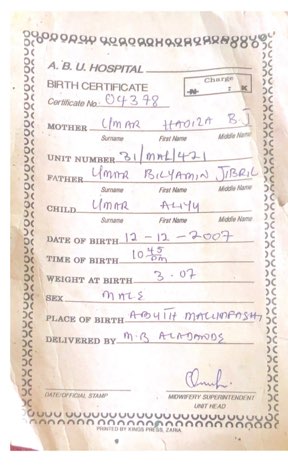 A. B. U. HOSPITAL
Charge
BIRTH CERTIFICATE
₦ : K
Certificate No. 04378
MOTHER UMAR HADIZA B. J
Surname First Name Middle Name
UNIT NUMBER 31/MAL/421
FATHER UMAR BILYAMIN JIBRIL
Surname First Name Middle Name
CHILD UMAR ALIYU
Surname First Name Middle Name
DATE OF BIRTH 12 - 12 - 2007
TIME OF BIRTH 10 45 pm
WEIGHT AT BIRTH 3.07
SEX MALE
PLACE OF BIRTH ABUTH
DELIVERED BY
DATE/OFFICIAL STAMP MIDWIFERY SUPERINTENDENT
UNIT HEAD
PRINTED BY KINGS PRESS, ZARIA